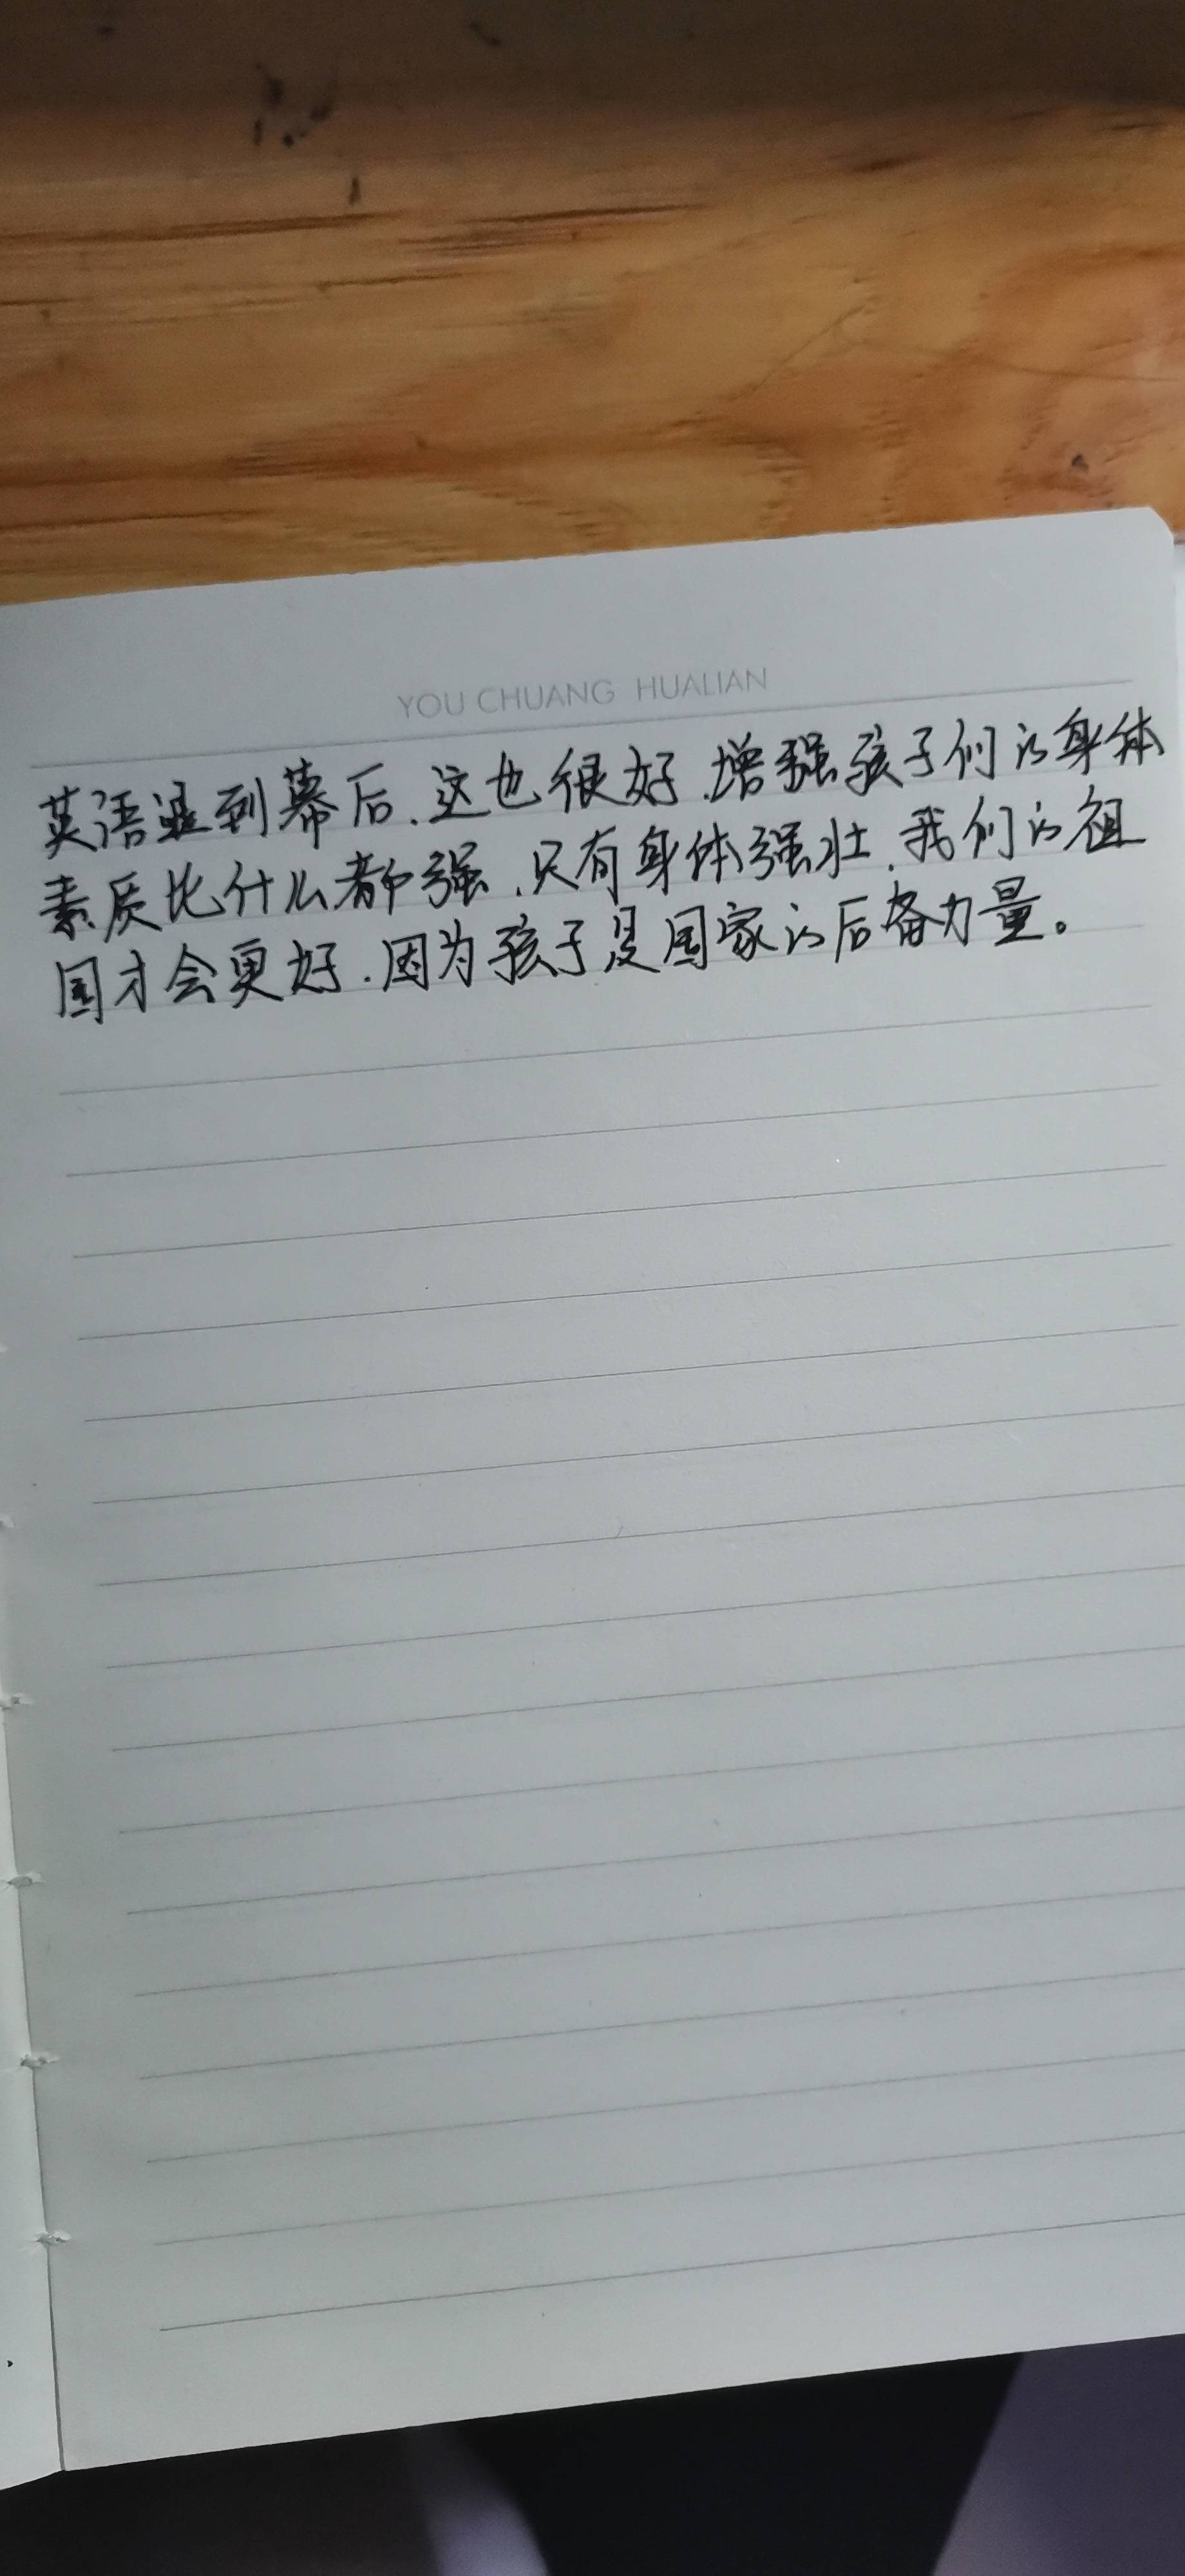 YOU CHUANG HUALIAN
英语退到幕后.这也很好.增强孩子们的身体
素质比什么都强.只有身体强壮.我们的祖
国才会更好.因为孩子是国家的后备力量。